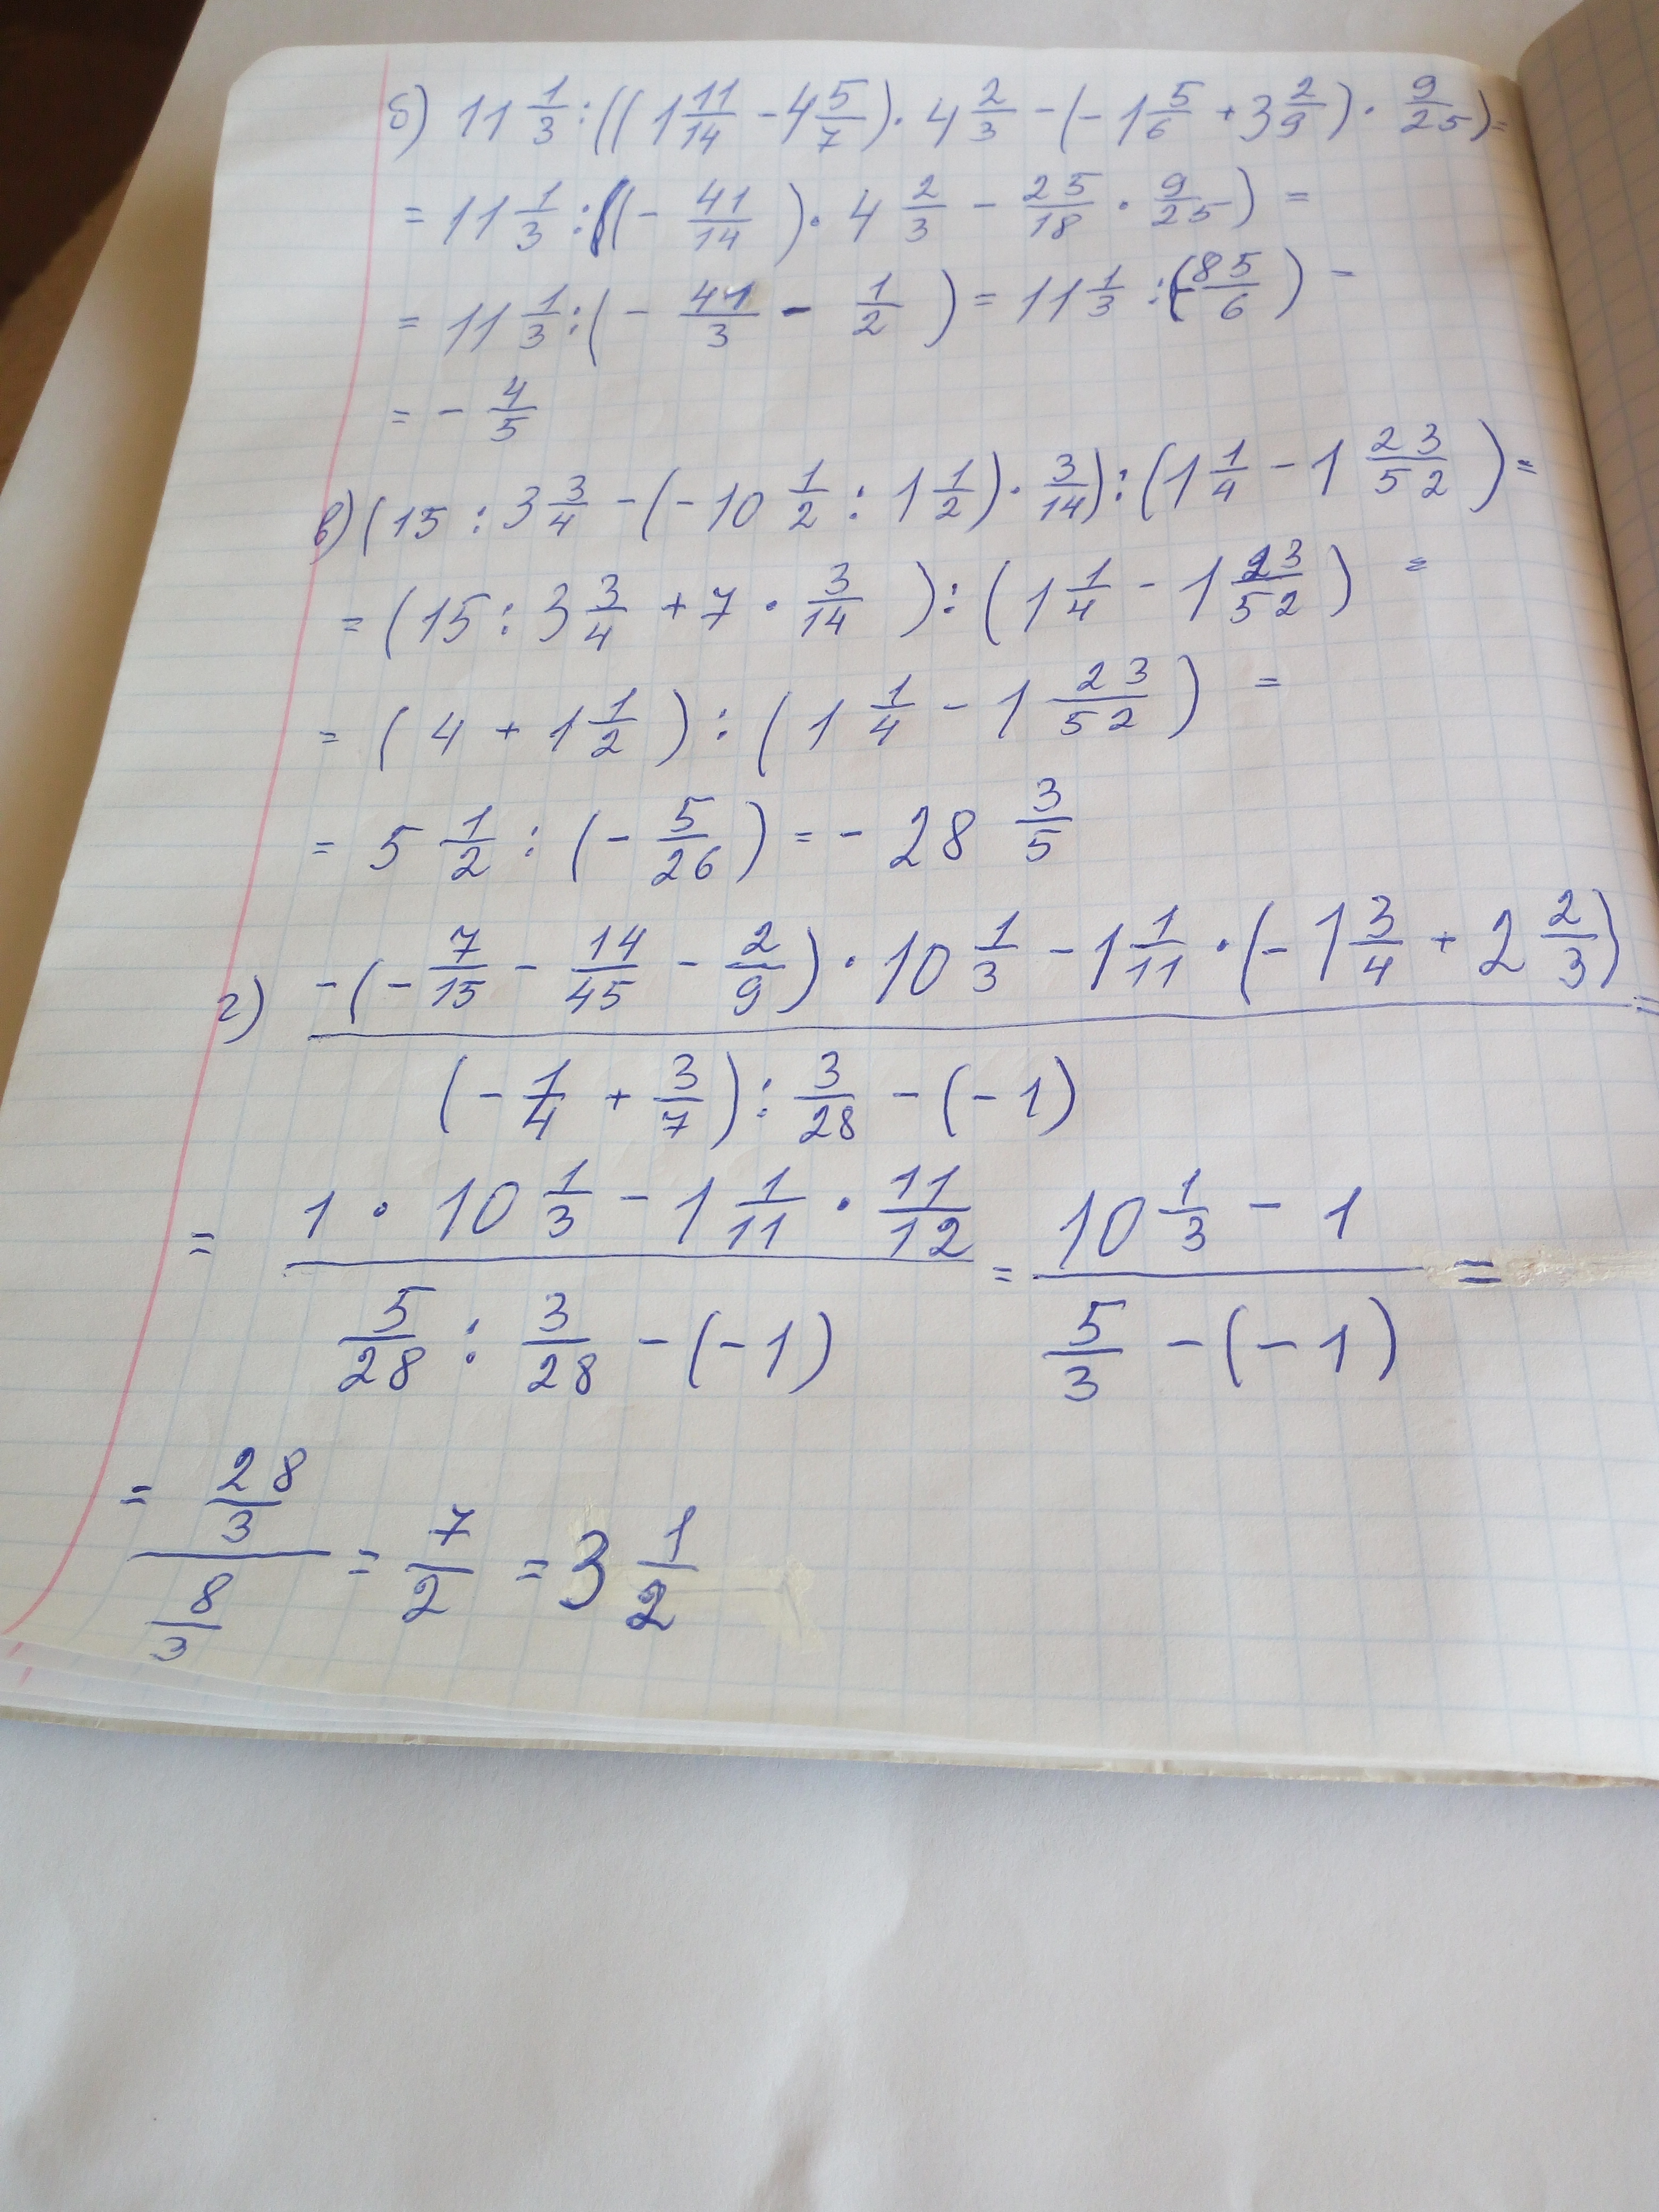 б) 11 1/3 : ((1 11/14 - 4 5/7) · 4 2/3 - (-1 5/6 + 3 2/9) · 9/25) =
= 11 1/3 : ((- 41/14) · 4 2/3 - 25/18 · 9/25) =
= 11 1/3 : (- 41/3 - 1/2) = 11 1/3 : (- 85/6) =
= - 4/5
в) (15 : 3 3/4 - (-10 1/2 : 1 1/2) · 3/14) : (1 1/4 - 1 23/52) =
= (15 : 3 3/4 + 7 · 3/14) : (1 1/4 - 1 23/52) =
= (4 + 1 1/2) : (1 1/4 - 1 23/52) =
= 5 1/2 : (- 5/26) = - 28 3/5
г) (-(- 7/15 - 14/45 - 2/9) · 10 1/3 - 1 1/11 · (-1 3/4 + 2 2/3)) / ((- 1/4 + 3/7) : 3/28 - (-1)) =
= (1 · 10 1/3 - 1 1/11 · 11/12) / (5/28 : 3/28 - (-1)) = (10 1/3 - 1) / (5/3 - (-1)) =
= (28/3) / (8/3) = 7/2 = 3 1/2